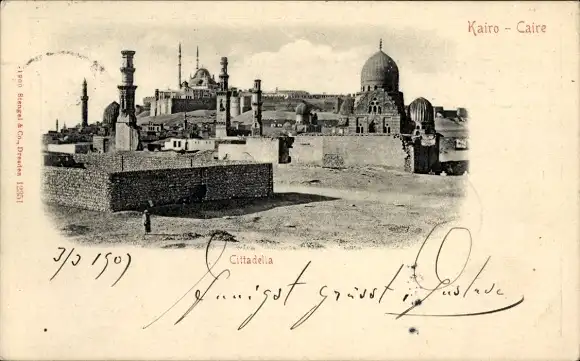 Kairo - Caire
1900 Stengel & Co., Dresden 12951
Cittadella
3/3 1907
Innigst grüsst Gustave